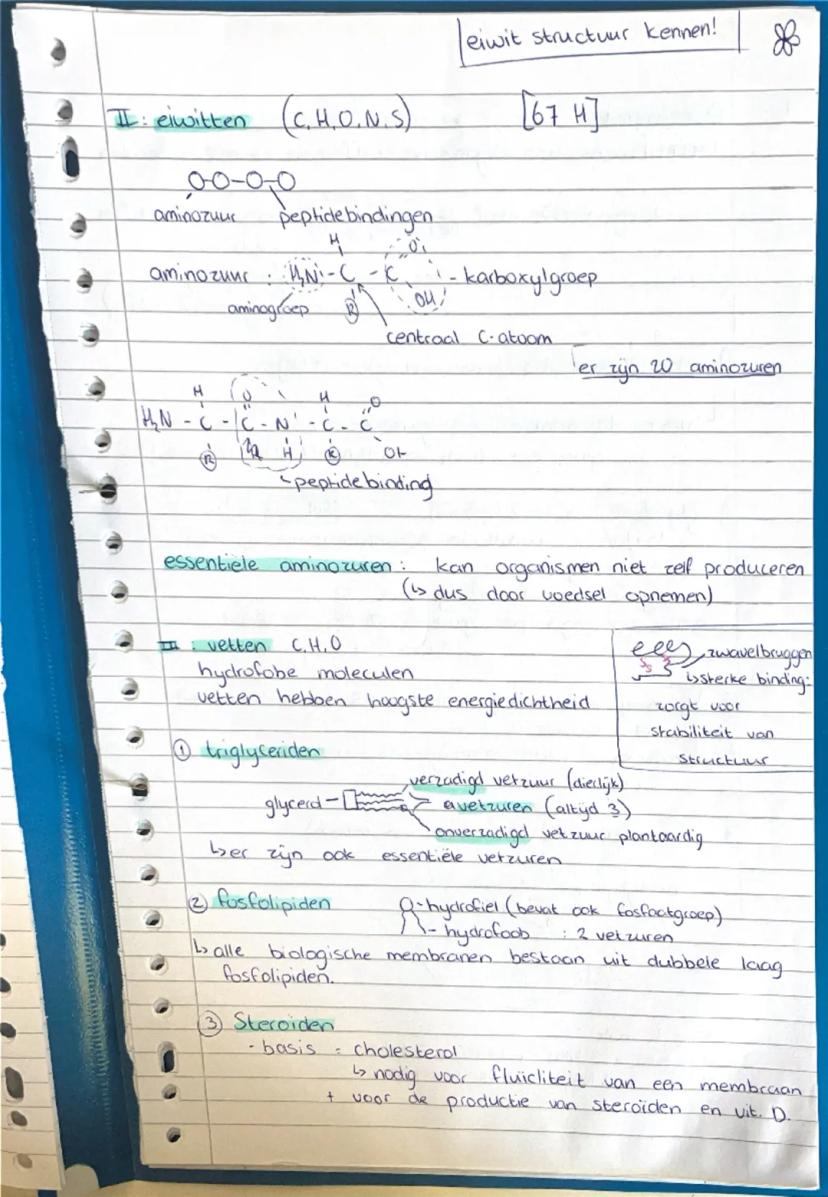 eiwit structuur kennen!
II : eiwitten (C,H,O,N,S) [67 H]
O-O-O-O
aminozuur peptidebindingen
H O
aminozuur : H₂N - C - C - karboxylgroep
R OH
aminogroep
centraal C-atoom
er zijn 20 aminozuren
H O H O
H₂N - C - C - N - C - C
R H R OH
peptidebinding
essentiele aminozuren : kan organismen niet zelf produceren
(↳ dus door voedsel opnemen)
III : vetten C,H,O
hydrofobe moleculen
vetten hebben hoogste energiedichtheid
zwavelbruggen
S S
↳sterke binding:
zorgt voor
stabiliteit van
structuur
① triglyceriden
verzadigd vetzuur (dierlijk)
glycerol - vetzuren (altijd 3)
onverzadigd vetzuur plantaardig
↳er zijn ook essentiële vetzuren
② fosfolipiden - hydrofiel (bevat ook fosfaatgroep)
- hydrofoob : 2 vetzuren
↳ alle biologische membranen bestaan uit dubbele laag
fosfolipiden.
③ Steroïden
- basis = cholesterol
↳ nodig voor fluïcliteit van een membraan
+ voor de productie van steroïden en vit. D.